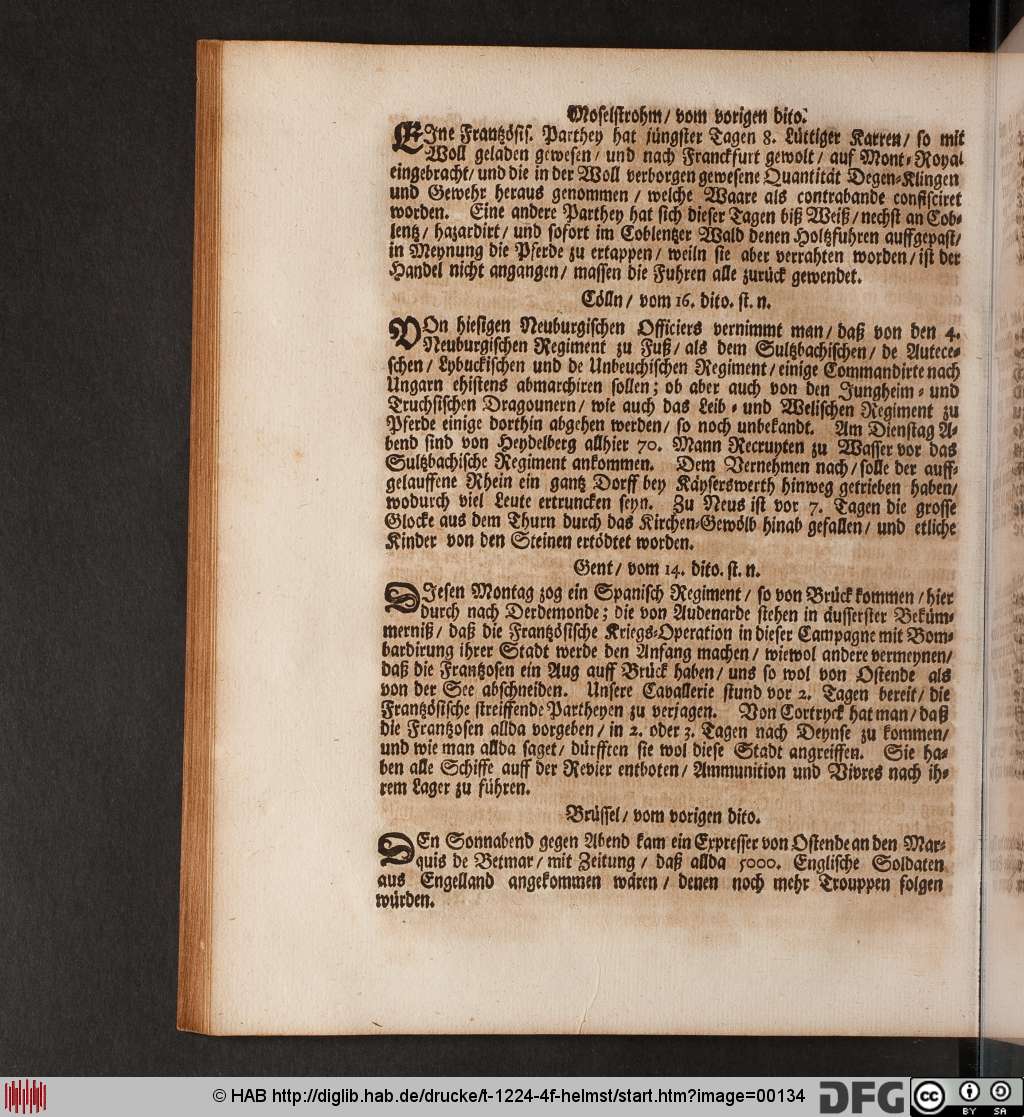 Moselstrohm / vom vorigen dito.
EIne Frantzösis. Parthey hat jüngster Tagen 8. Lüttiger Karren / so mit
Woll geladen gewesen / und nach Franckfurt gewolt / auf Mont-Royal
eingebracht / und die in der Woll verborgen gewesene Quantität Degen-Klingen
und Gewehr heraus genommen / welche Waare als contrabande confisciret
worden. Eine andere Parthey hat sich dieser Tagen biß Weiß / nechst an Cob-
lentz / hazardirt / und sofort im Coblentzer Wald denen Holtzfuhren auffgepast /
in Meynung die Pferde zu ertappen / weiln sie aber verrahten worden / ist der
Handel nicht angangen / massen die Fuhren alle zurück gewendet.
Cölln / vom 16. dito. st. n.
VOn hiesigen Neuburgischen Officiers vernimmt man / daß von den 4.
Neuburgischen Regiment zu Fuß / als dem Sultzbachischen / de Autece-
schen / Lybuckischen und de Unbeuchischen Regiment / einige Commandirte nach
Ungarn ehistens abmarchiren sollen; ob aber auch von den Jungheim- und
Truchsischen Dragounern / wie auch das Leib- und Welischen Regiment zu
Pferde einige dorthin abgehen werden / so noch unbekandt. Am Dienstag A-
bend sind von Heydelberg allhier 70. Mann Recruyten zu Wasser vor das
Sultzbachische Regiment ankommen. Dem Vernehmen nach / solle der auff-
gelauffene Rhein ein gantz Dorff bey Käyserswerth hinweg getrieben haben /
wodurch viel Leute ertruncken seyn. Zu Neus ist vor 7. Tagen die grosse
Glocke aus dem Thurn durch das Kirchen-Gewölb hinab gefallen / und etliche
Kinder von den Steinen ertödtet worden.
Gent / vom 14. dito. st. n.
DIesen Montag zog ein Spanisch Regiment / so von Brück kommen / hier
durch nach Derdemonde; die von Audenarde stehen in äusserster Beküm-
merniß / daß die Frantzösische Kriegs-Operation in dieser Campagne mit Bom-
bardirung ihrer Stadt werde den Anfang machen / wiewol andere vermeynen /
daß die Frantzosen ein Aug auff Brück haben / uns so wol von Ostende als
von der See abschneiden. Unsere Cavallerie stund vor 2. Tagen bereit / die
Frantzösische streiffende Partheyen zu verjagen. Von Cortryck hat man / daß
die Frantzosen allda vorgeben / in 2. oder 3. Tagen nach Deynse zu kommen /
und wie man allda saget / dürfften sie wol diese Stadt angreiffen. Sie ha-
ben alle Schiffe auff der Revier entboten / Ammunition und Vivres nach ih-
rem Lager zu führen.
Brüssel / vom vorigen dito.
DEn Sonnabend gegen Abend kam ein Expresser von Ostende an den Mar-
quis de Betmar / mit Zeitung / daß allda 5000. Englische Soldaten
aus Engelland angekommen wären / denen noch mehr Trouppen folgen
würden.
© HAB http://diglib.hab.de/drucke/t-1224-4f-helmst/start.htm?image=00134
DFG
CC BY SA